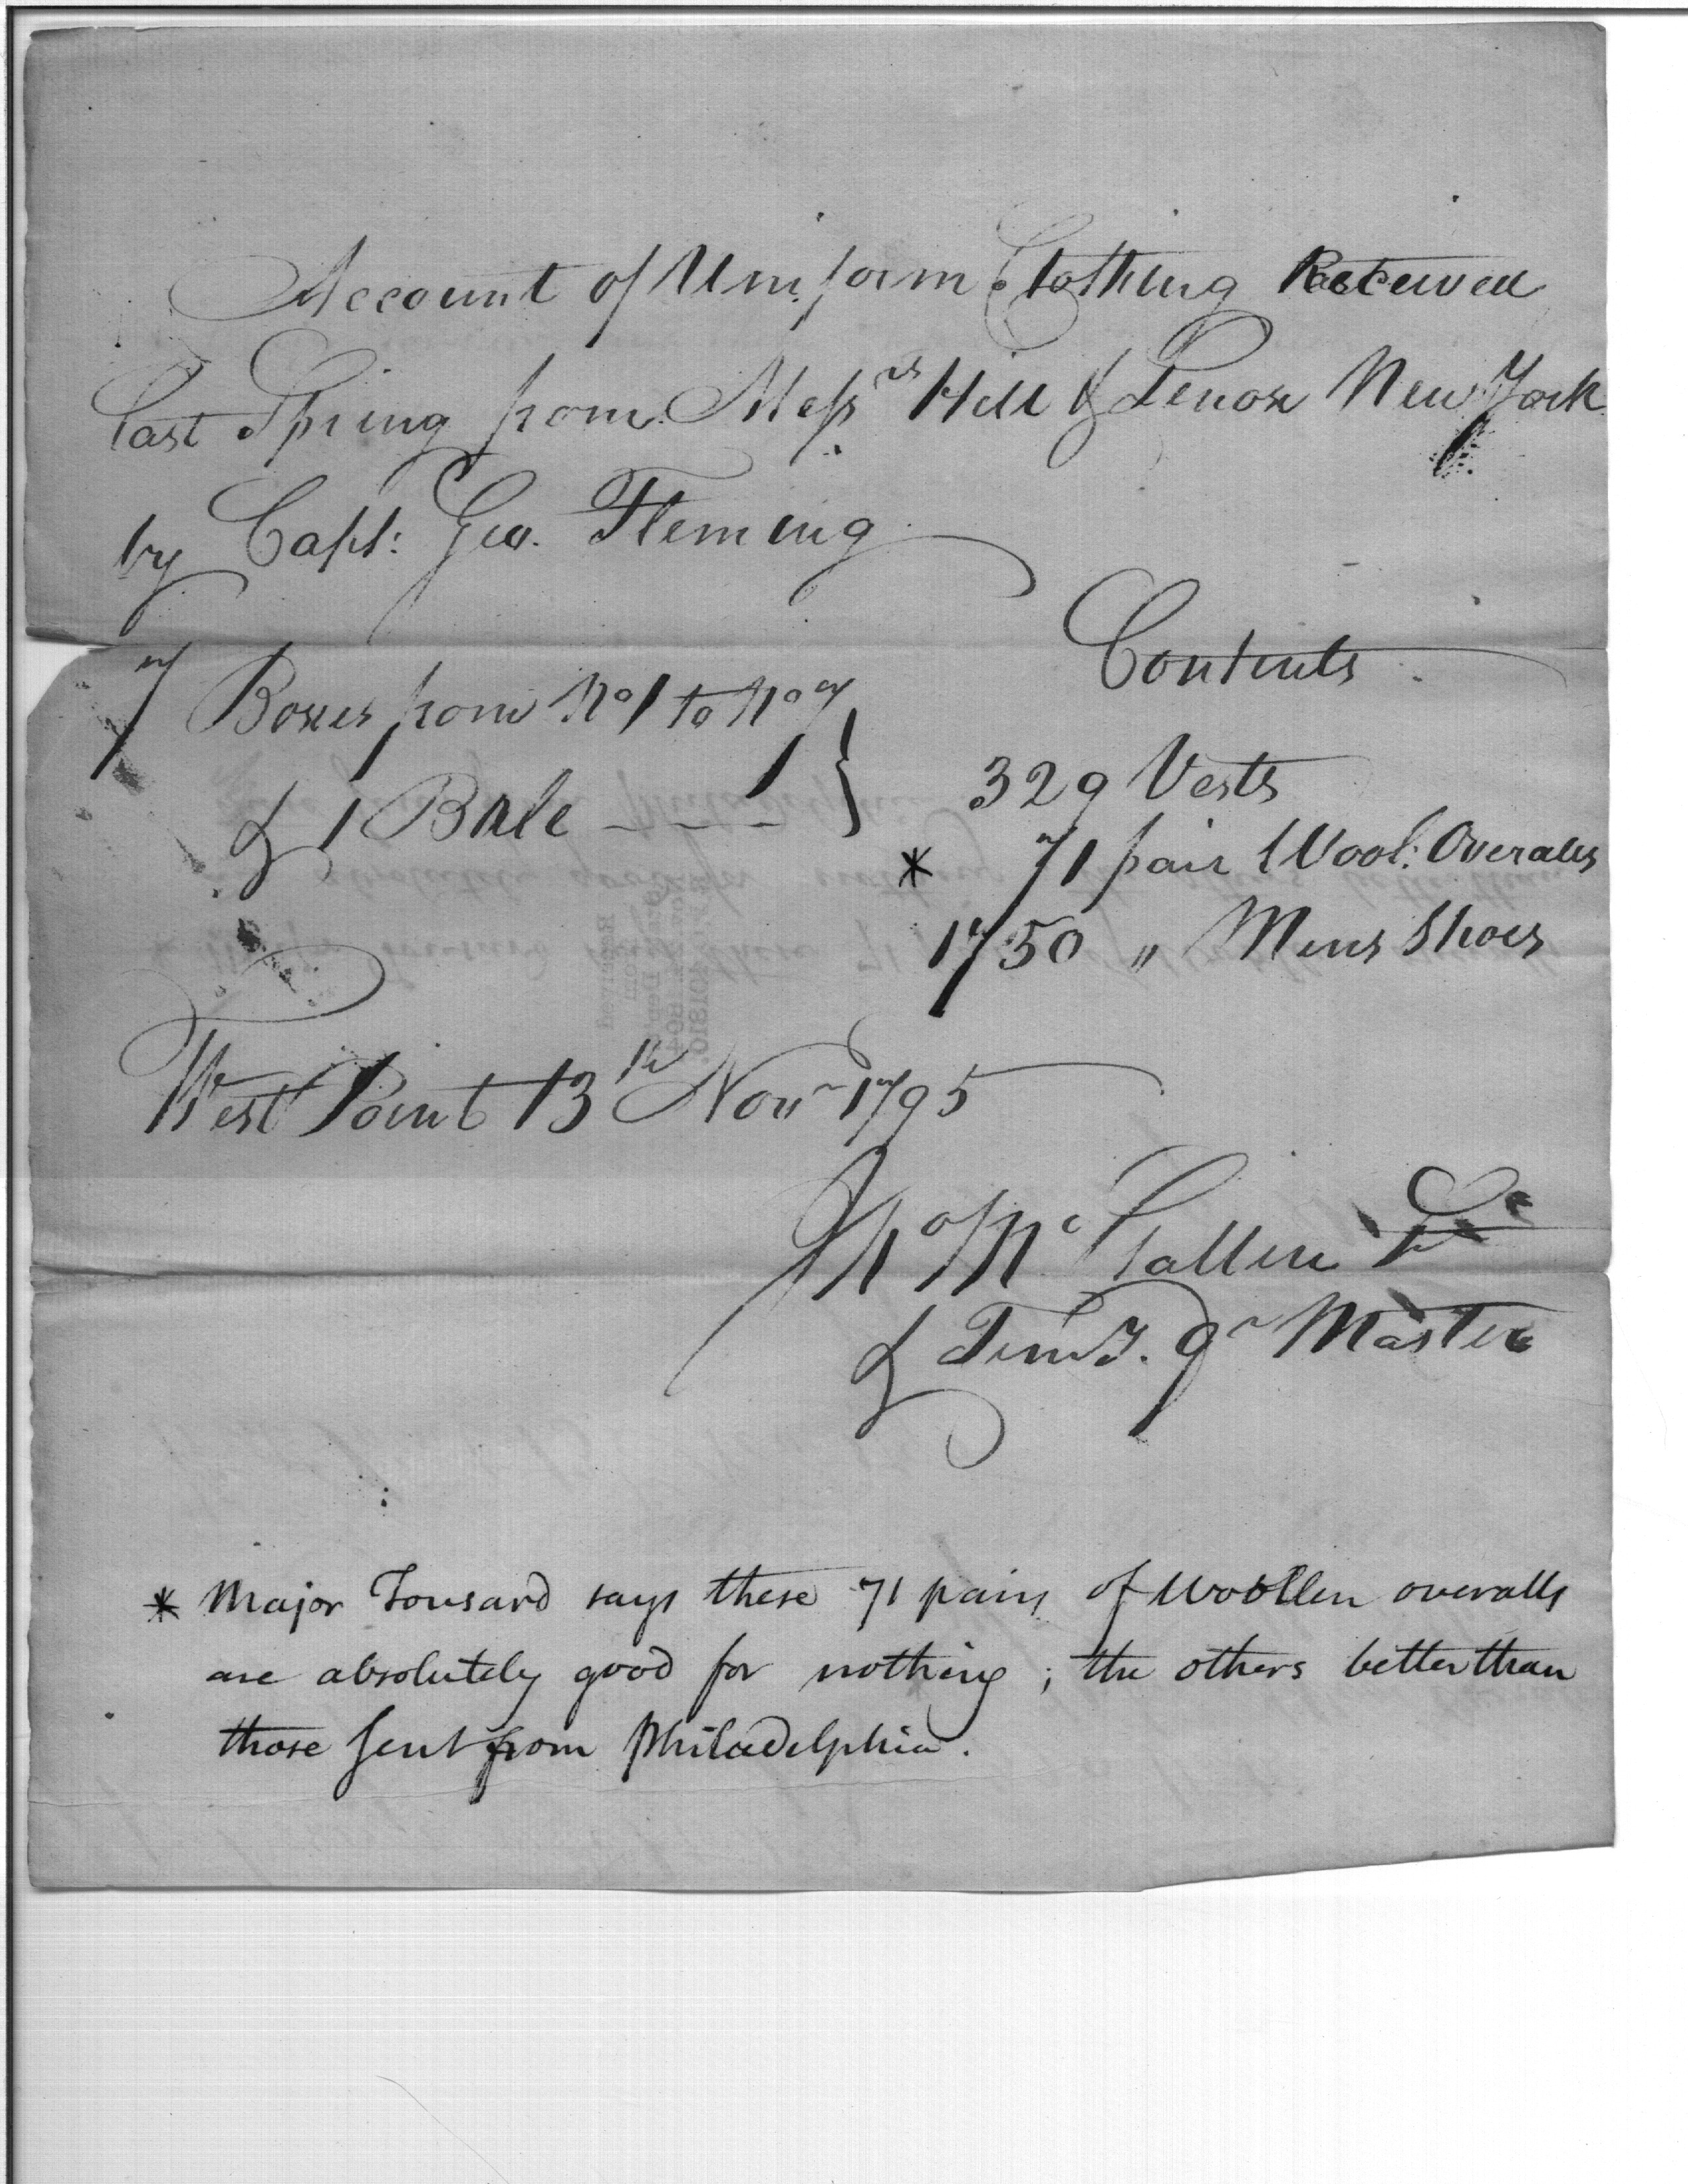 Account of Uniform Clothing Received
last Spring from Messrs Hill & Lenox New York
by Capt: Geo. Fleming
Contents
7 Boxes from No 1 to No 7
& 1 Bale - - - 1 }
329 Vests
* 71 pair Wool: Overalls
1750 " Mens Shoes
West Point 13th Novr 1795
& Fr Master
* Major Tousard says these 71 pairs of Woollen overalls
are absolutely good for nothing; the others better than
those sent from Philadelphia.